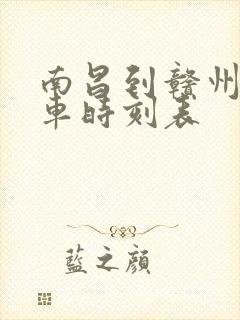 南昌到赣州
車時刻表
藍之顔